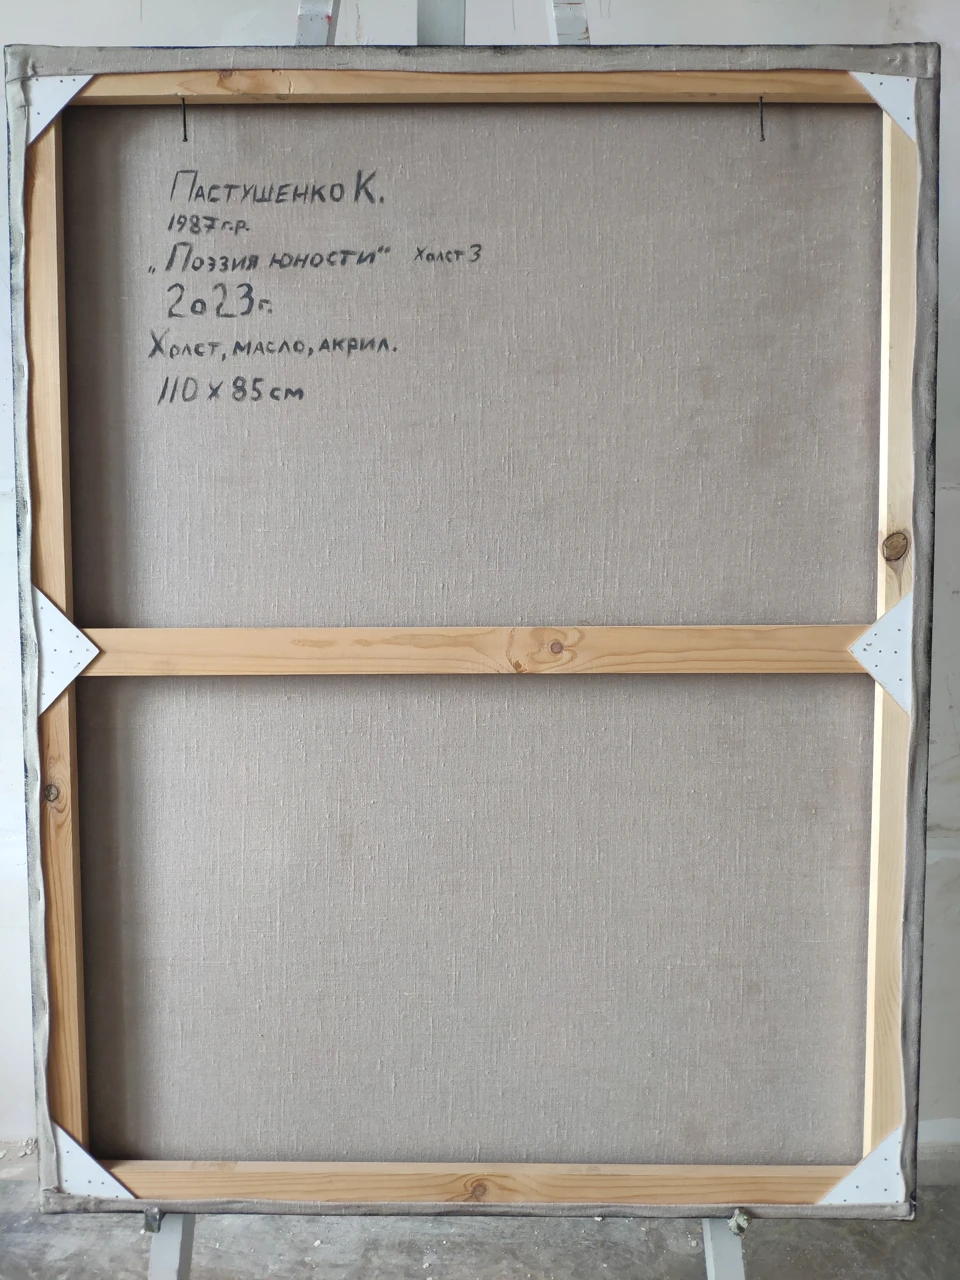 Пастушенко К.
1987 г.р.
„Поэзия юности“ Холст 3
2023г.
Холст, масло, акрил.
110 х 85 см